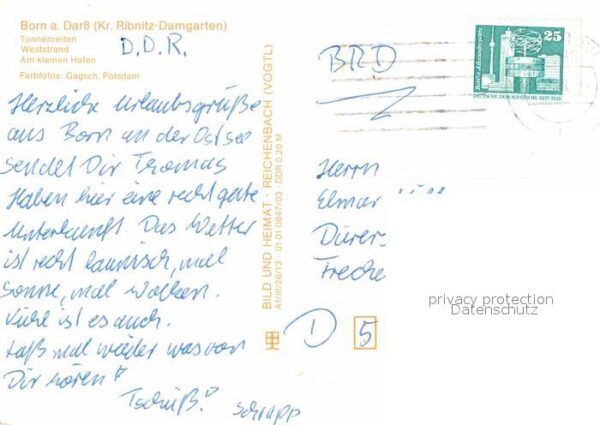 Born a. Darß (Kr. Ribnitz-Damgarten)
Tonnenreiten
Weststrand
Am kleinen Hafen
Farbfotos: Gagsch, Potsdam
D.D.R.
Herzliche Urlaubsgrüße
aus Born an der Ostsee
sendet Dir Thomas
Haben hier eine recht gute
Unterkunft. Das Wetter
ist recht launisch, mal
Sonne, mal Wolken.
Kühl ist es auch.
Laß mal wieder was von
Dir hören!
Tschüß!
BILD UND HEIMAT · REICHENBACH (VOGTL)
A1/III/26/13 01 01 0847/03 DDR 0,20 M
BRD
25
Berlin, Alexanderplatz
DEUTSCHE DEMOKRATISCHE REPUBLIK
Herrn
Elmar
Dürer-
Freche
privacy protection
Datenschutz
D 5